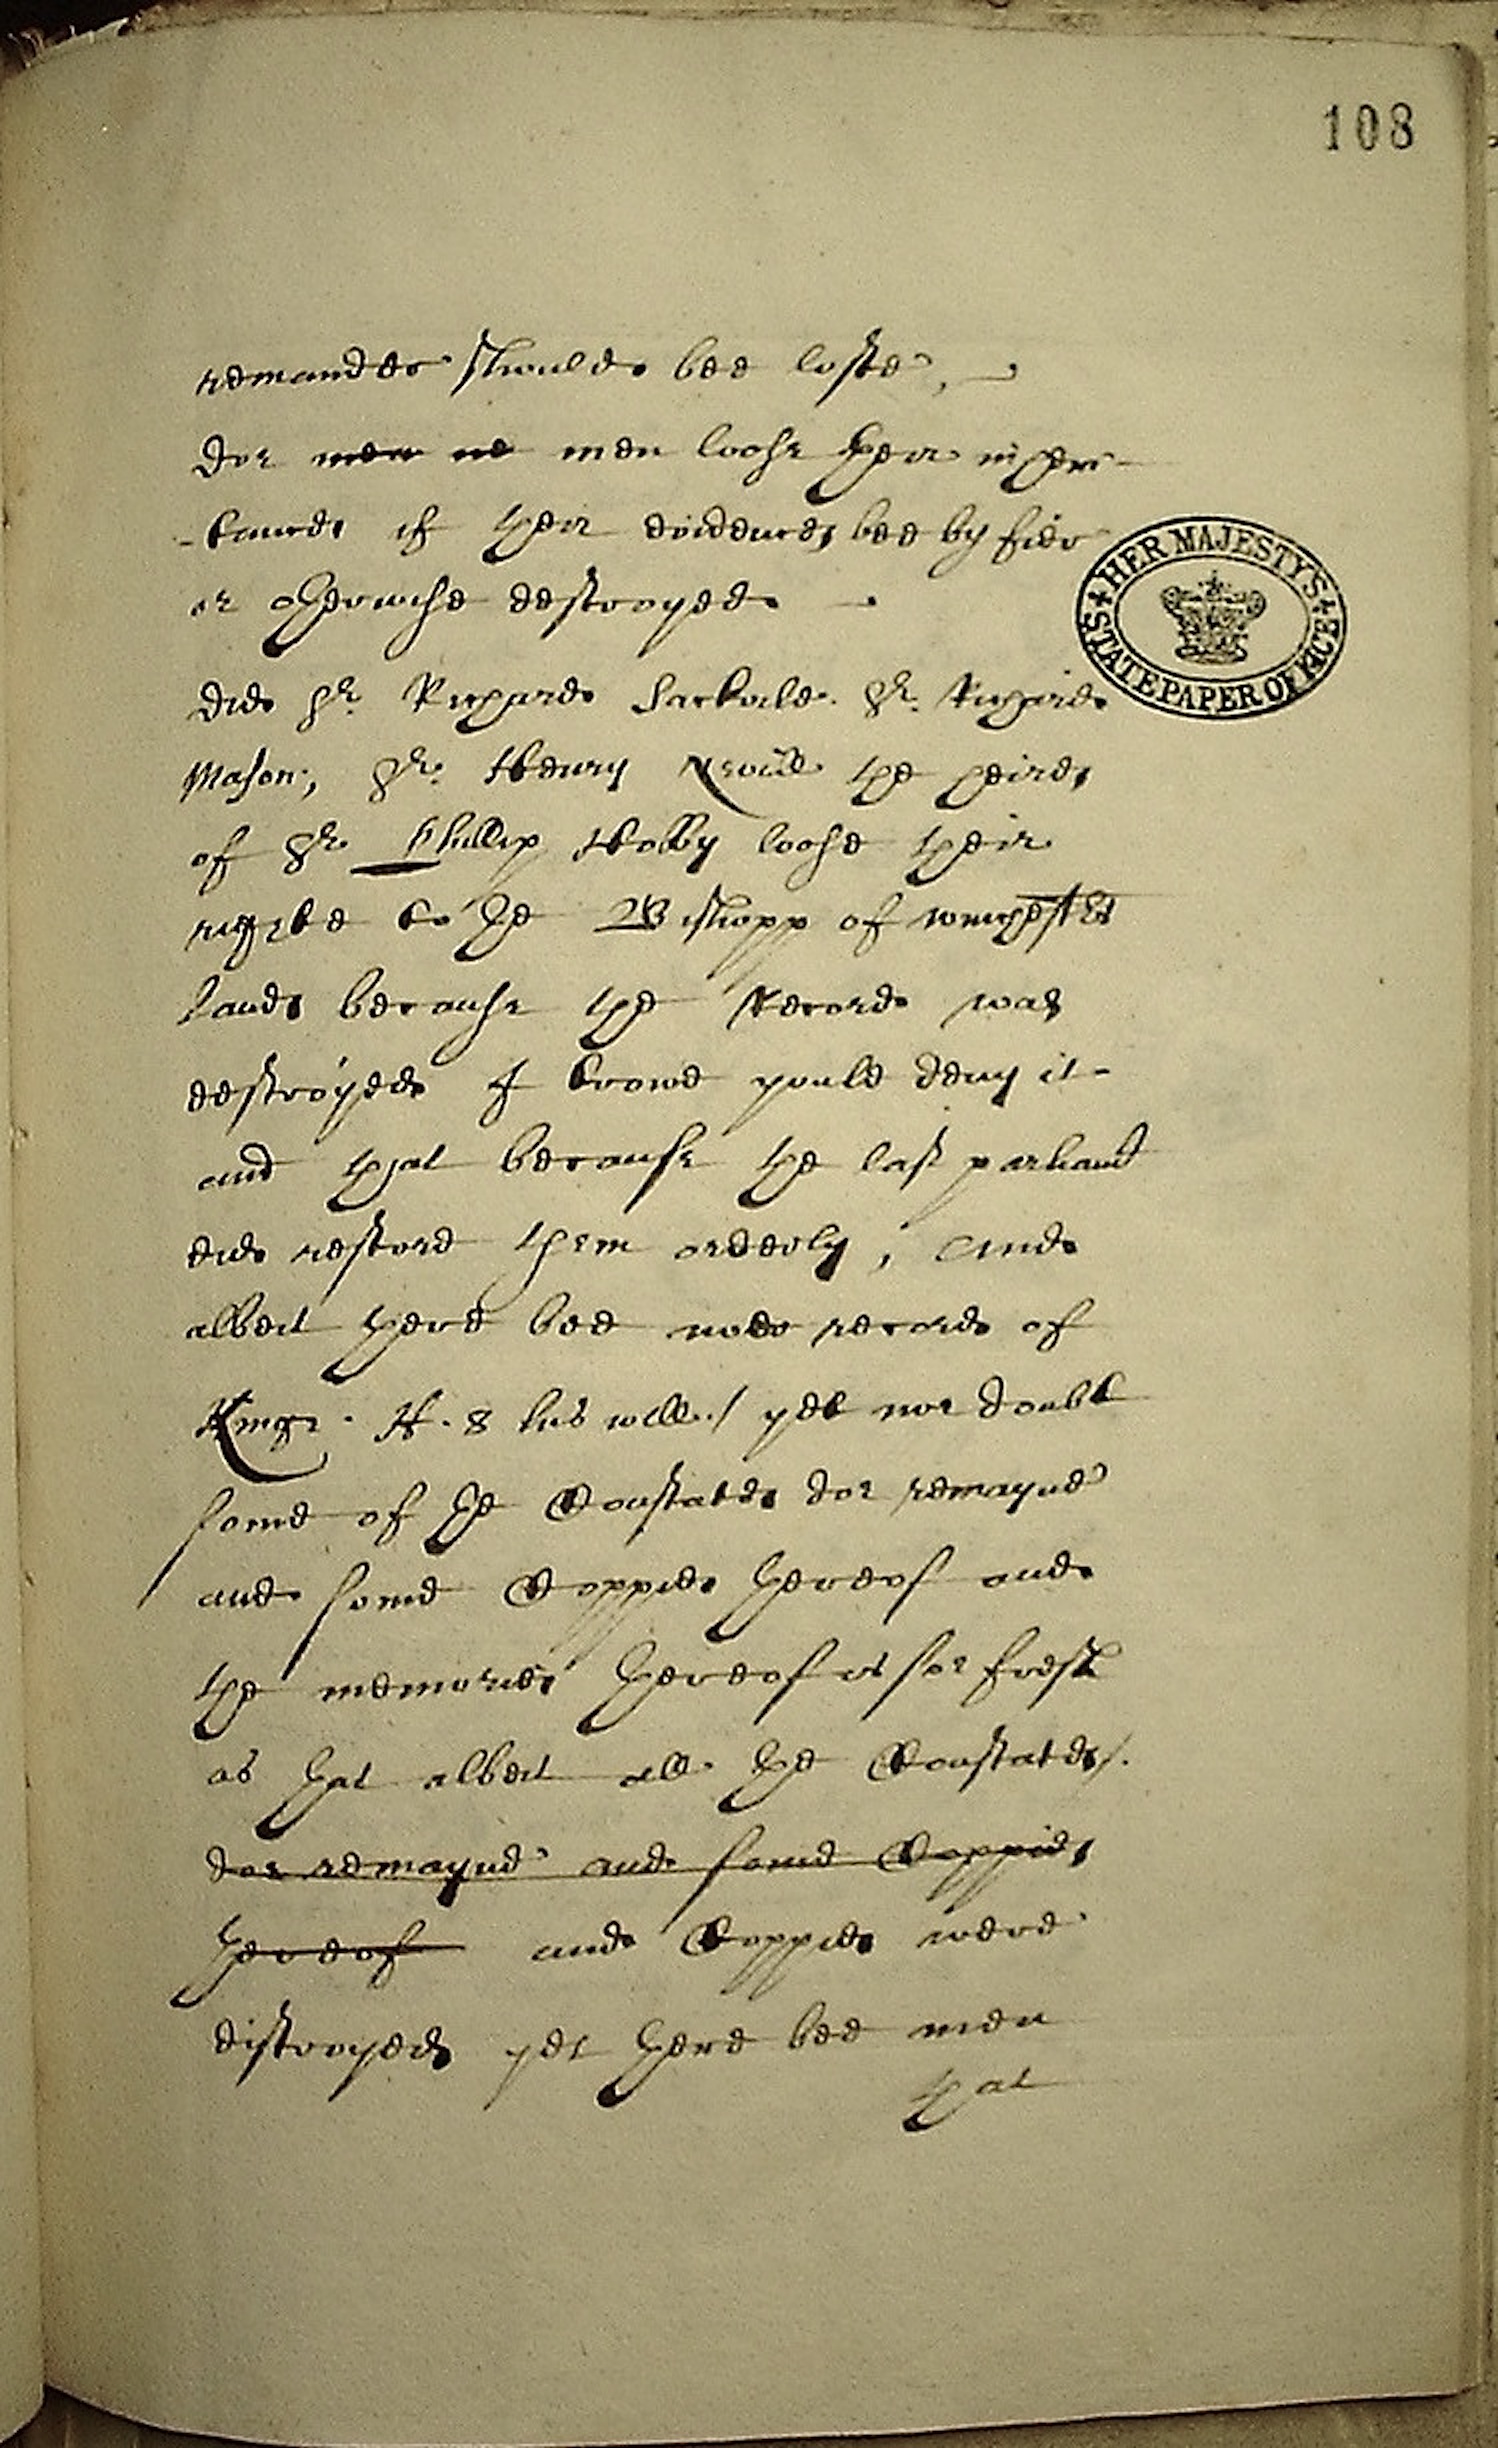 108
remander should bee loste,
doe men ne men loose their inheri-
-tance if their evidences bee by fier
or otherwise destroyed
HER MAJESTY'S STATE PAPER OFFICE
did Sr. Richard Sackvile Sr. Richard
Mason, Sr. Henry Nevill the heires
of Sr. Phillip Hobby loose their
righte to the Bishopp of winchester
lands because the Record was
destroyed I trowe youle deny it
and that because the last parliamt
did restore them orderly, And
albeit there bee noe record of
Kinge H. 8 his will / yet noe doubt
some of the Constates doe remayne
and some Coppies thereof and
the memories thereof is soe fresh
as that albeit all the Constates /.
doe remayne and some Coppies
thereof and Coppies were
distroyed yet there bee men
that